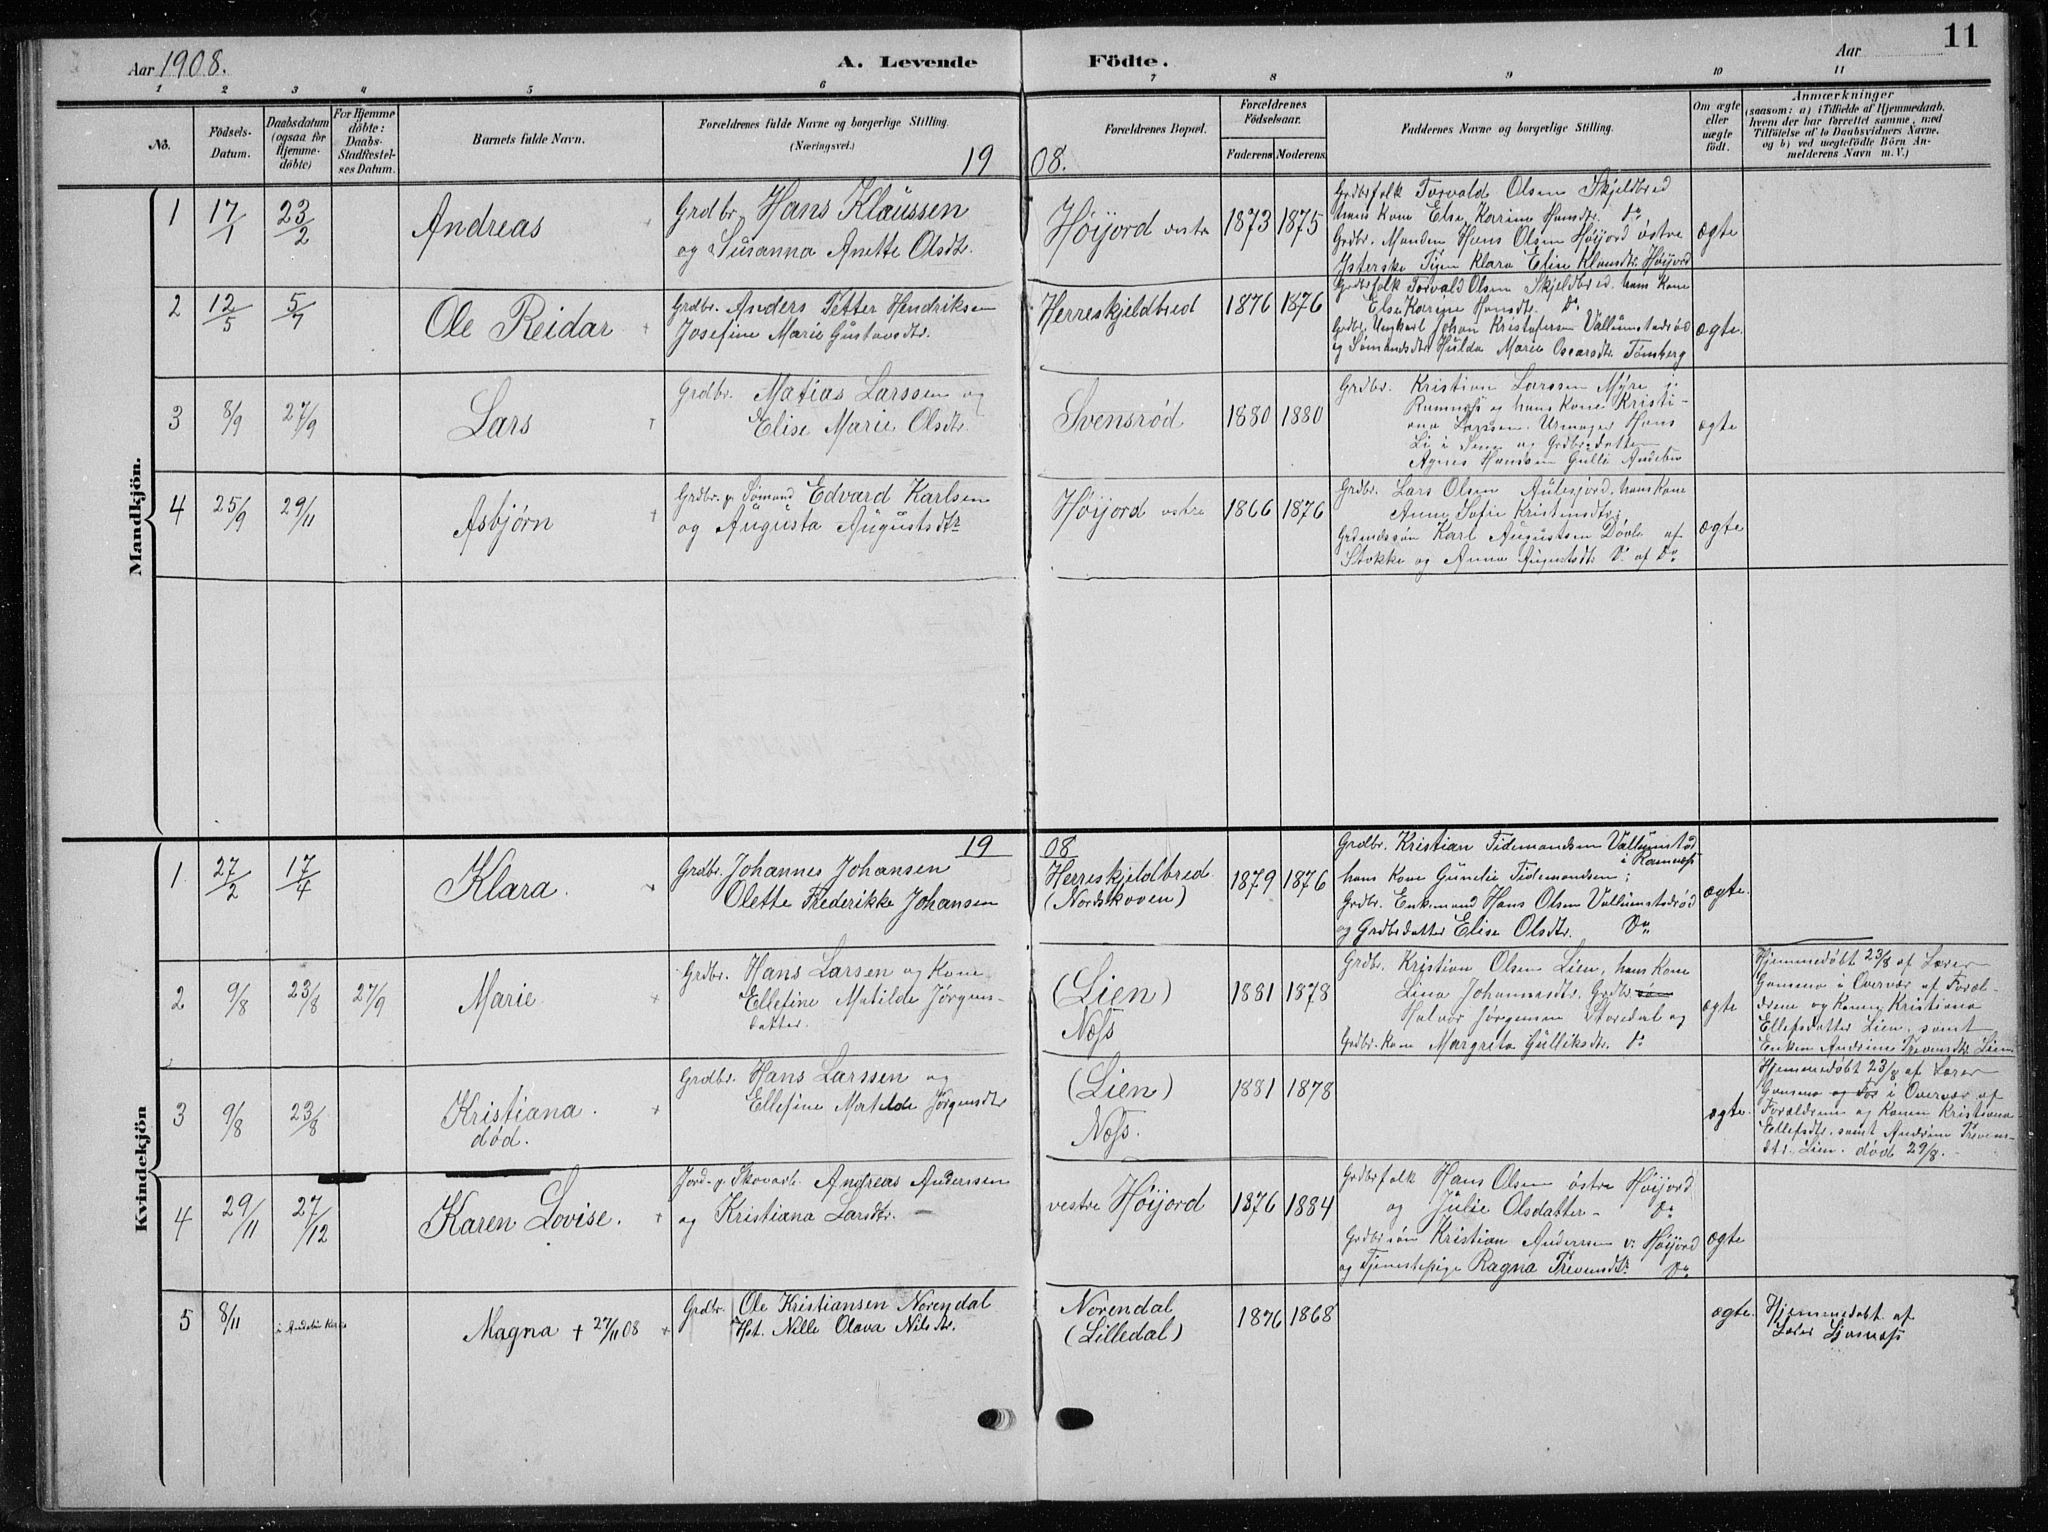 Aar 1908.
A. Levende Födte.
Aar
11
1 2 3 4 5 6 7 8 9 10 11
No.
Födsels-Datum.
Daabsdatum (ogsaa for Hjemme-döbte)
For Hjemmedöbte: Daabs-Stadfæstelses Datum.
Barnets fulde Navn.
Forældrenes fulde Navne og borgerlige Stilling. (Næringsvei.)
Forældrenes Bopæl.
Forældrenes Födselsaar.
Faderens Moderens
Faddernes Navne og borgerlige Stilling.
Om ægte eller uægte födt.
Anmærkninger
(saasom: a) i Tilfælde af Hjemmedaab, hvem der har forrettet samme, med Tilföielse af to Daabsvidners Navne, og b) ved uægtefödte Börn Anmelderens Navn m. V.)
19 08.
Mandkjön.
1 17/1 23/2 Andreas
Grdbr. Hans Klaussen
og Susanna Anette Olsdtr.
Høijord vestre 1873 1875
Grdbrfolk Torvald Olsen Skjeldbred
hans Kone Else Karine Hansdtr. Do
Grdbr. Manden Hans Olsen Høijord østre
Pigen Klara Elise Klausdtr. Høijord
ægte
2 12/5 5/7 Ole Reidar
Grdbr. Anders Petter Hendriksen
Josefine Marie Gustavsdtr.
Herreskjeldbred 1876 1876
Grdbrfolk Torvald Olsen Skjeldbred, hans Kone
Else Karine Hansdtr. Do
Grdbr. Ungkarl Johan Kristofersen Vallumstadrød
og Sømandsdtr Hulda Marie Oscarsdtr. Tønsberg
ægte.
3 8/9 27/9 Lars
Grdbr. Matias Larssen og
Elise Marie Olsdtr.
Svensrød 1880 1880
Grdbr. Kristian Larssen Myre i
Ramnæss og hans Kone Kristi-
ana Larssen. Urmager Hans
Li i Sem og Grdbrsdatter
Agnes Hanssen Gulli Andebu
ægte
4 25/9 29/11 Asbjørn
Grdbr. og Sømand Edvard Karlsen
og Augusta Augustsdtr
Høijord østre 1866 1876
Grdbr. Lars Olsen Aulesjord, hans Kone
Anne Sofie Kristensdtr;
Grdmdssøn Karl Augustsen Døvle af
Stokke og Anna Augustsdtr Do af Do
ægte
19 08
Kvindekjön
1 27/2 17/4 Klara.
Grdbr. Johannes Johansen
Olette Frederikke Johansen
Herreskjeldbred
(Nordskoven) 1879 1876
Grdbr. Kristian Tidemandsen Vallumstad
i Ramnæss
hans Kone Gunelie Tidemandsen;
Grdbr. Enkemand Hans Olsen Vallumstadrød
og Grdbrsdatter Elise Olsdtr. Do
ægte.
2 9/8 23/8 27/9 Marie.
Grdbr. Hans Larsen og Kone
Ellefine Matilde Jørgens-
datter.
(Lien)
Næss 1881 1878
Grdbr. Kristian Olsen Lien, hans Kone
Lina Johannesdtr. Grdbr.
Halvor Jørgensen Storedal og
Grdbr. Kone Margrete Gulliksdtr. Do
ægte
Hjemmedøbt 23/8 af Lærer
i Overvær af Foræl-
drene og Konen Kristiana
Ellefsdatter Lien, samt
Enken Andrine Trevensdtr. Lien
3 9/8 23/8 Kristiana.
død.
Grdbr. Hans Larssen og
Ellefine Matilde Jørgensdtr
(Lien)
Næss. 1881 1878
ægte.
Hjemmedøbt 23/8 af Lærer
i Overvær af
Forældrene og Konen Kristiana
Ellefsdtr. samt Andrine Trevens-
dtr. Lien. død 29/8.
4 29/11 27/12 Karen Lovise.
Jord- og Skovarb. Andreas Anderssen
og Kristiana Larsdtr.
vestre Høijord 1876 1884
Grdbrfolk Hans Olsen østre Høijord
og Julie Olsdatter Do
Grdbrssøn Kristian Anderssen v. Høijord
og Tjenestepige Ragna Trevensdtr. Do
ægte
5 8/11 i Andebu Kirke Magna + 27/11 08
Grdbr. Ole Kristiansen Norendal
Hst. Nille Olava Nilsdtr.
Norendal
(Lilledal) 1876 1868
ægte.
Hjemmedøbt af
Lærer